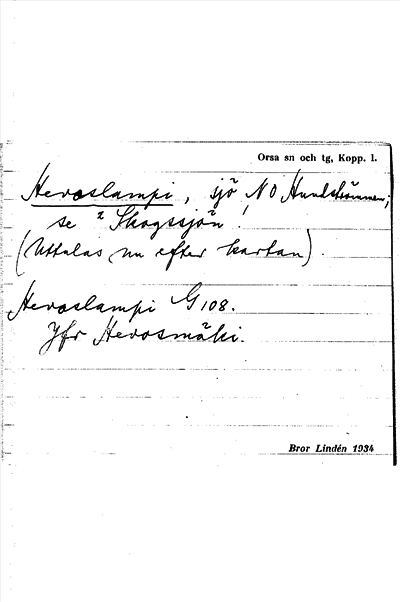 Orsa sn och tg, Kopp. l.
Hevoslampi, sjö NO Hundströmmen;
se ² Skogssjön!
(Uttalas nu efter kartan).
Hevoslampi G 108.
Jfr Hevosmäki.
Bror Lindén 1934